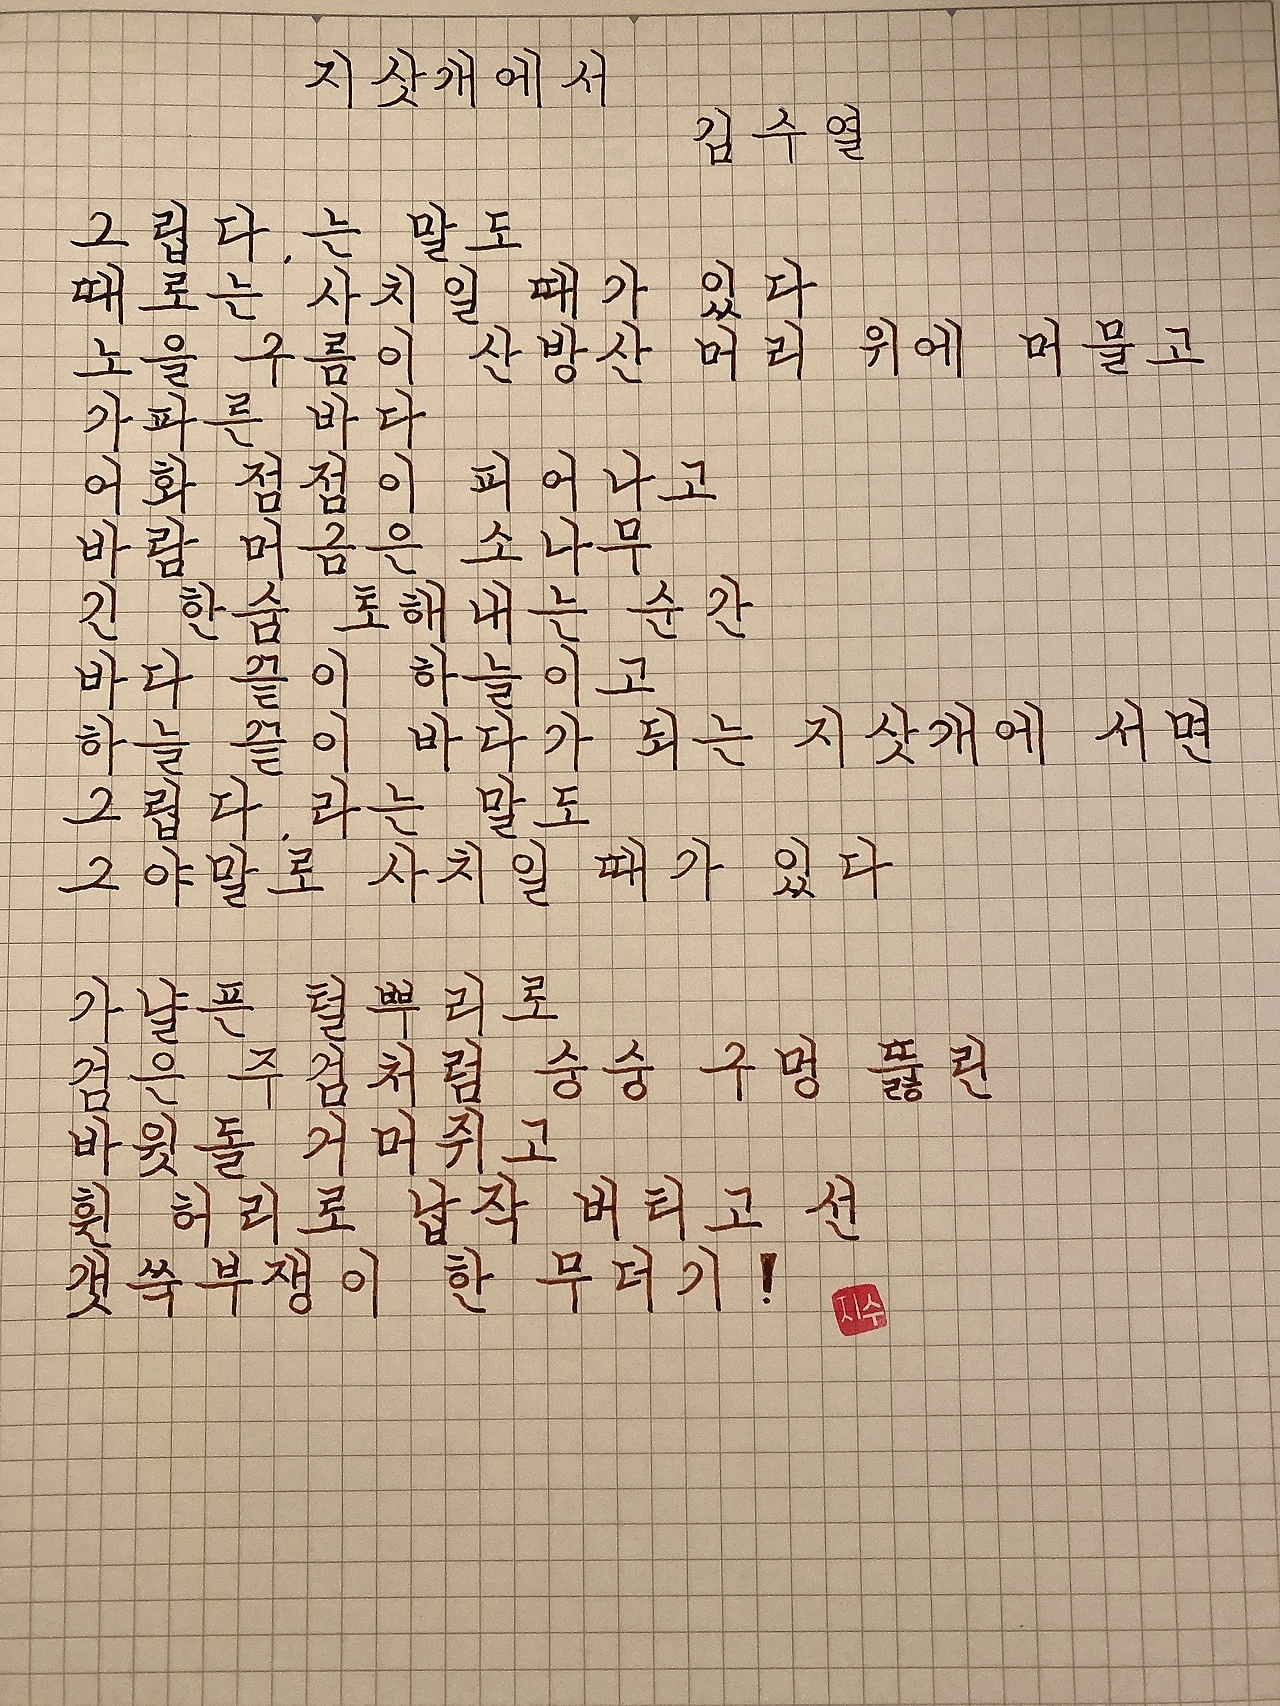 지삿개에서
김수열
그립다.는 말도
때로는 사치일 때가 있다
노을 구름이 산방산 머리 위에 머물고
가파른 바다
어화 점점이 피어나고
바람 머금은 소나무
긴 한숨 토해내는 순간
바다 끝이 하늘이고
하늘 끝이 바다가 되는 지삿개에 서면
그립다.라는 말도
그야말로 사치일 때가 있다
가냘픈 털뿌리로
검은 주검처럼 숭숭 구멍 뚫린
바윗돌 거머쥐고
휜 허리로 납작 버티고 선
갯쑥부쟁이 한 무더기!
지수